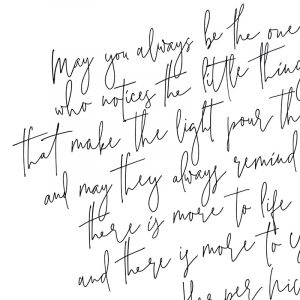 May you always be the one
who notices the little thing
that make the light pour th
and may they always remind
there is more to life
and there is more to